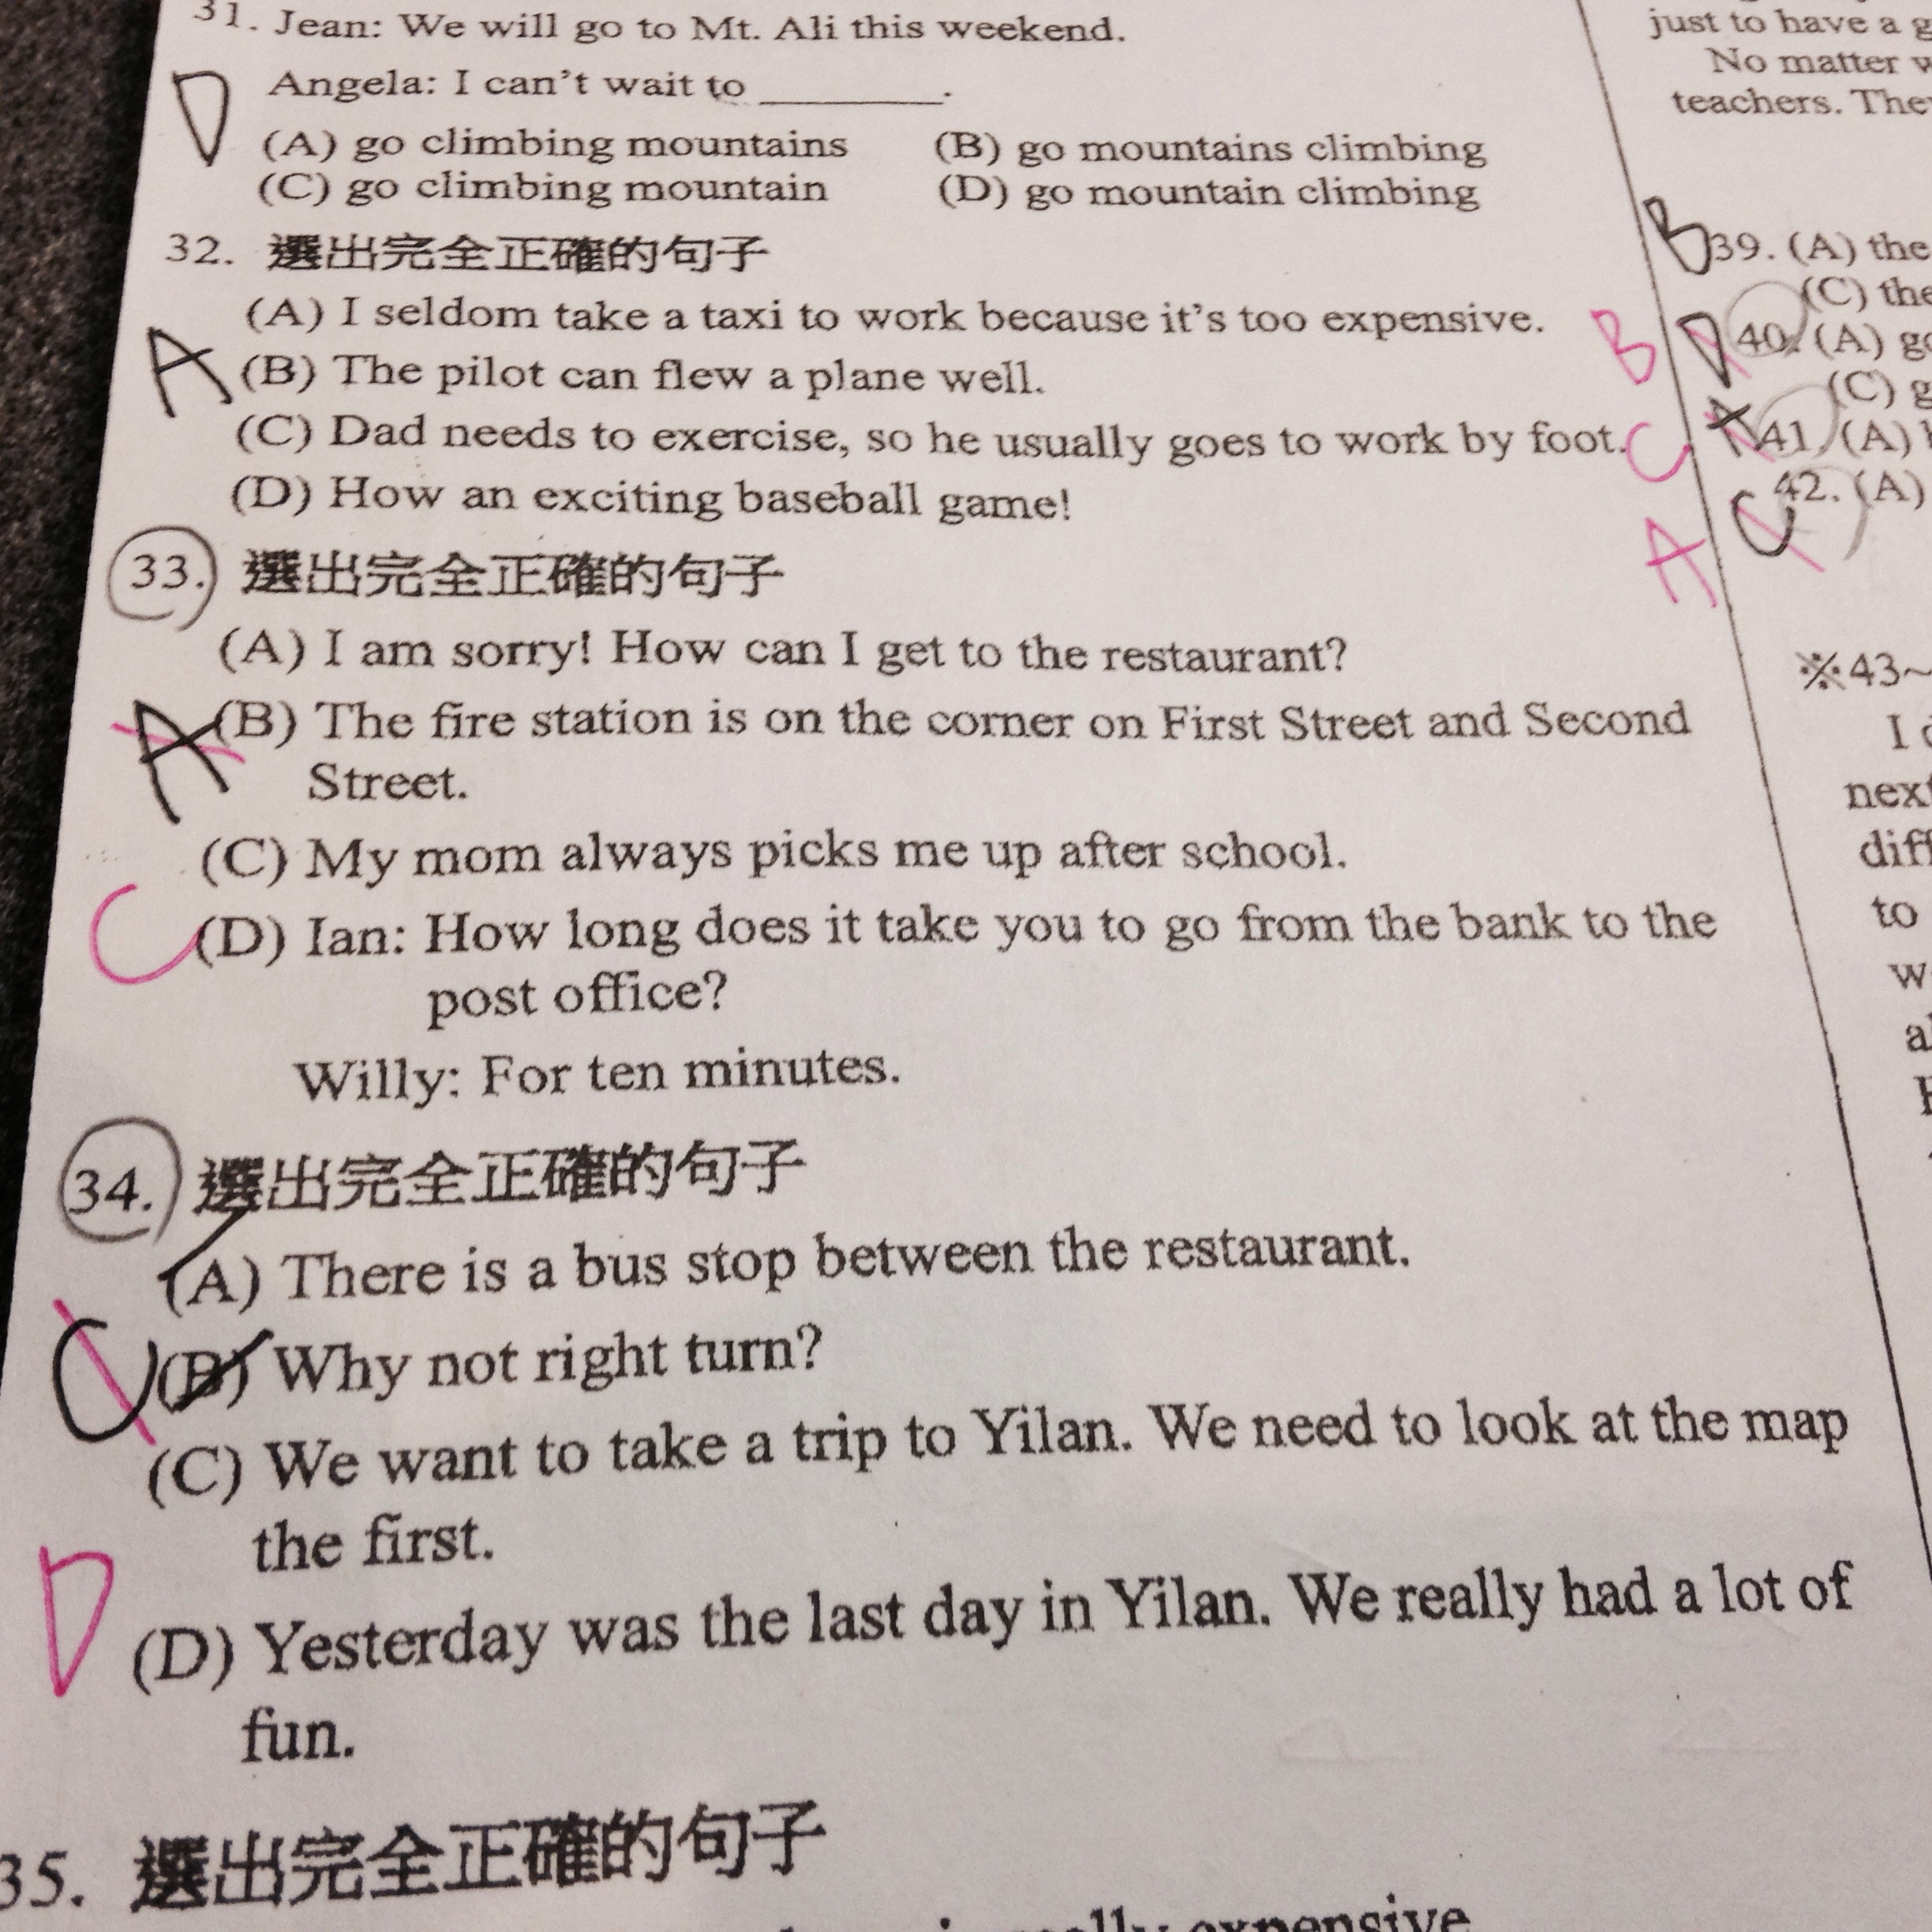 31. Jean: We will go to Mt. Ali this weekend.
Angela: I can't wait to ________.
D
(A) go climbing mountains (B) go mountains climbing
(C) go climbing mountain (D) go mountain climbing
32. 選出完全正確的句子
(A) I seldom take a taxi to work because it's too expensive.
A
(B) The pilot can flew a plane well.
(C) Dad needs to exercise, so he usually goes to work by foot.
(D) How an exciting baseball game!
33. 選出完全正確的句子
(A) I am sorry! How can I get to the restaurant?
A
(B) The fire station is on the corner on First Street and Second
Street.
(C) My mom always picks me up after school.
C
(D) Ian: How long does it take you to go from the bank to the
post office?
Willy: For ten minutes.
34. 選出完全正確的句子
(A) There is a bus stop between the restaurant.
C
(B) Why not right turn?
(C) We want to take a trip to Yilan. We need to look at the map
the first.
D
(D) Yesterday was the last day in Yilan. We really had a lot of
fun.
35. 選出完全正確的句子
expensive
just to have a
No matter
teachers.
B
39. (A) the
(C)
B D 40. (A)
(C)
C A 41. (A)
A C 42. (A)
※43~
I
next
to